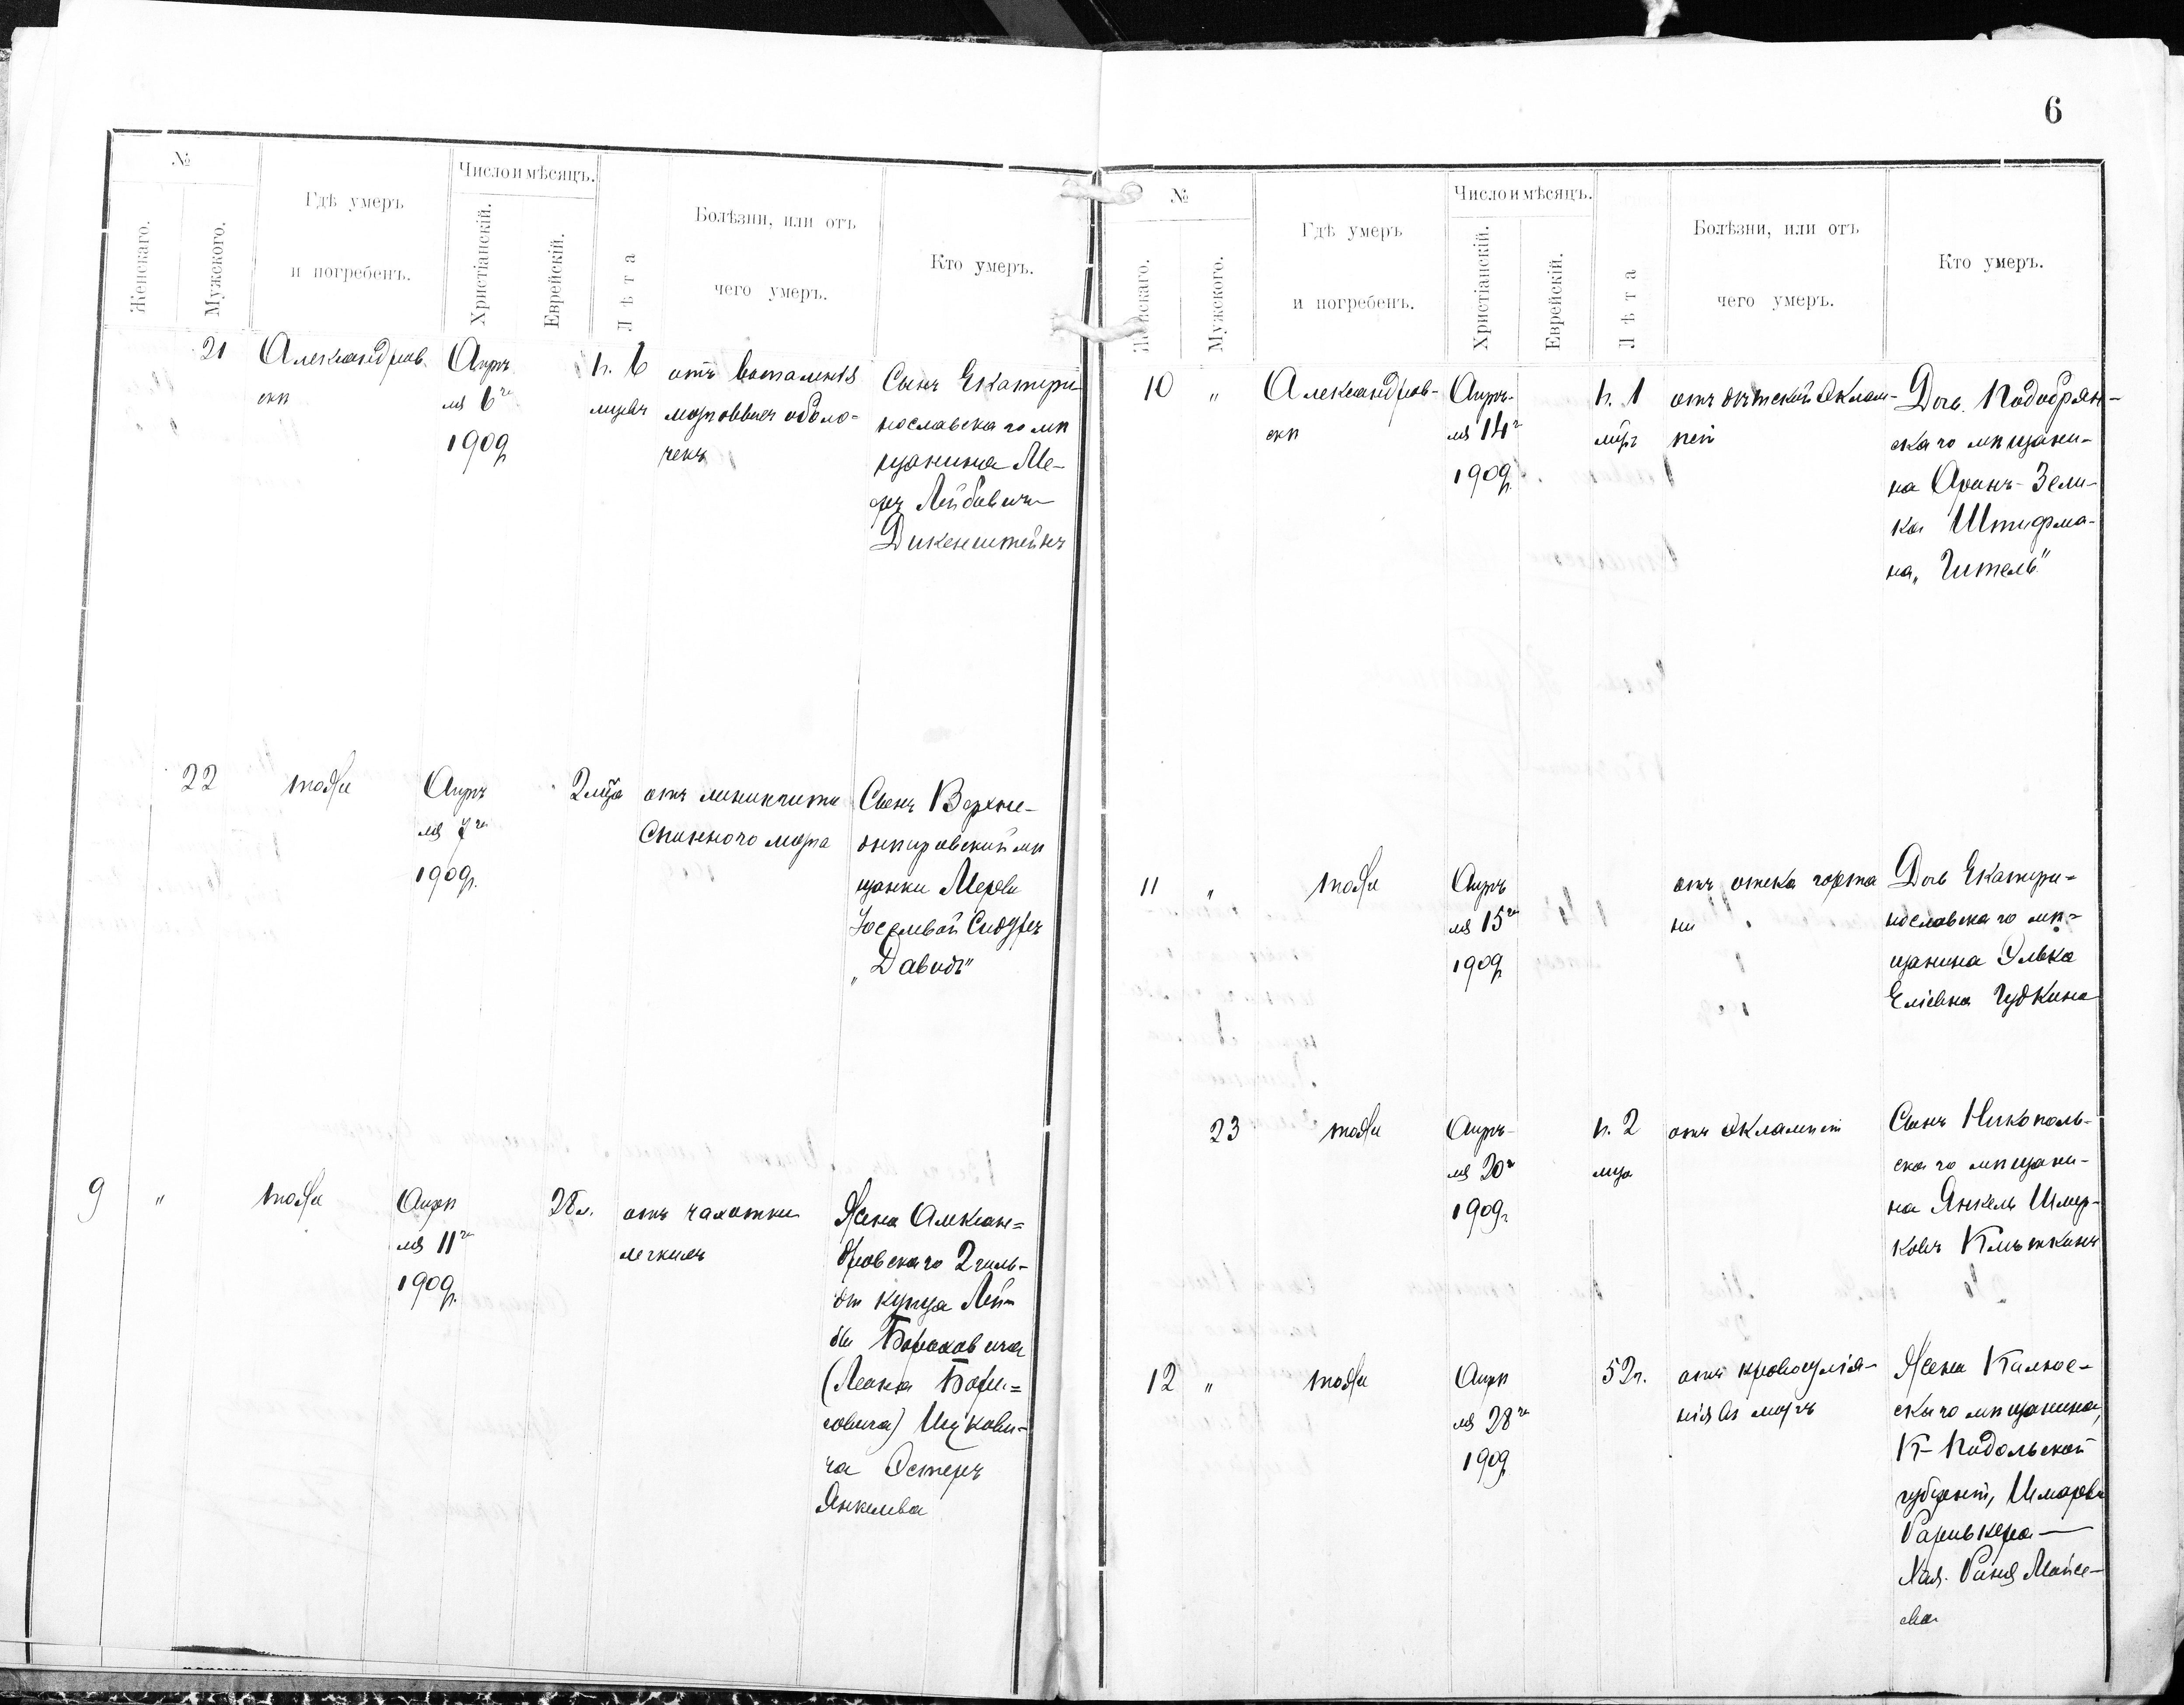 6
№
Женскаго.
Мужского.
Гдѣ умеръ
и погребенъ.
Число и мѣсяцъ.
Христіанскій.
Еврейскій.
Лѣта
Болѣзни, или отъ
чего умеръ.
Кто умеръ.
21
Александров
скѣ
Апрѣ
ля 6го
1909г.
п. 6
мцевъ
отъ воспаленія
мозговыхъ оболо-
чекъ
Сынъ Екатери
нославскаго мѣ
щанина Ме-
еръ Лейбовичъ
Дикенштейнъ
22
тоже
Апрѣ
ля 7го
1909г.
2 мца
отъ
Спинного мозга
Сынъ Верхне-
днѣпровской мѣ
щанки
"Давидъ"
9
"
тоже
Апрѣ
ля 11го
1909г.
28 л.
отъ чахотки
легкихъ
Жена Алексан=
дровскаго 2 гиль-
діи купца Лей-
бы Бороховича
(Леона Бори=
совича) Ицкови-
ча Эстеръ
Янкелева
№
Женскаго.
Мужского.
Гдѣ умеръ
и погребенъ.
Число и мѣсяцъ.
Христіанскій.
Еврейскій.
Лѣта
Болѣзни, или отъ
чего умеръ.
Кто умеръ.
10
"
Александров-
скѣ
Апрѣ-
ля 14го
1909г.
п. 1
мцъ
отъ дѣтской эклам-
псіи
Дочь
скаго мѣщани-
на Аронъ-Зели-
ка Штифма-
на, "Гитель"
11
"
тоже
Апрѣ
ля 15го
1909г.
отъ отека горта
ни
Дочь Екатери-
нославскаго мѣ-
щанина
Еліевна Гудкина
23
тоже
Апрѣ-
ля 20го
1909г.
п. 2
мца
отъ эклампсіи
Сынъ Никополь-
скаго мѣщани-
на Янкель Шмер-
ковъ
12
"
тоже
Апрѣ
ля 28го
1909г.
52 г.
отъ кровоизлія-
нія въ мозгъ
Жена
скаго мѣщанина,
К-Подольской
губерніи,
Хая
Мойсе-
ева